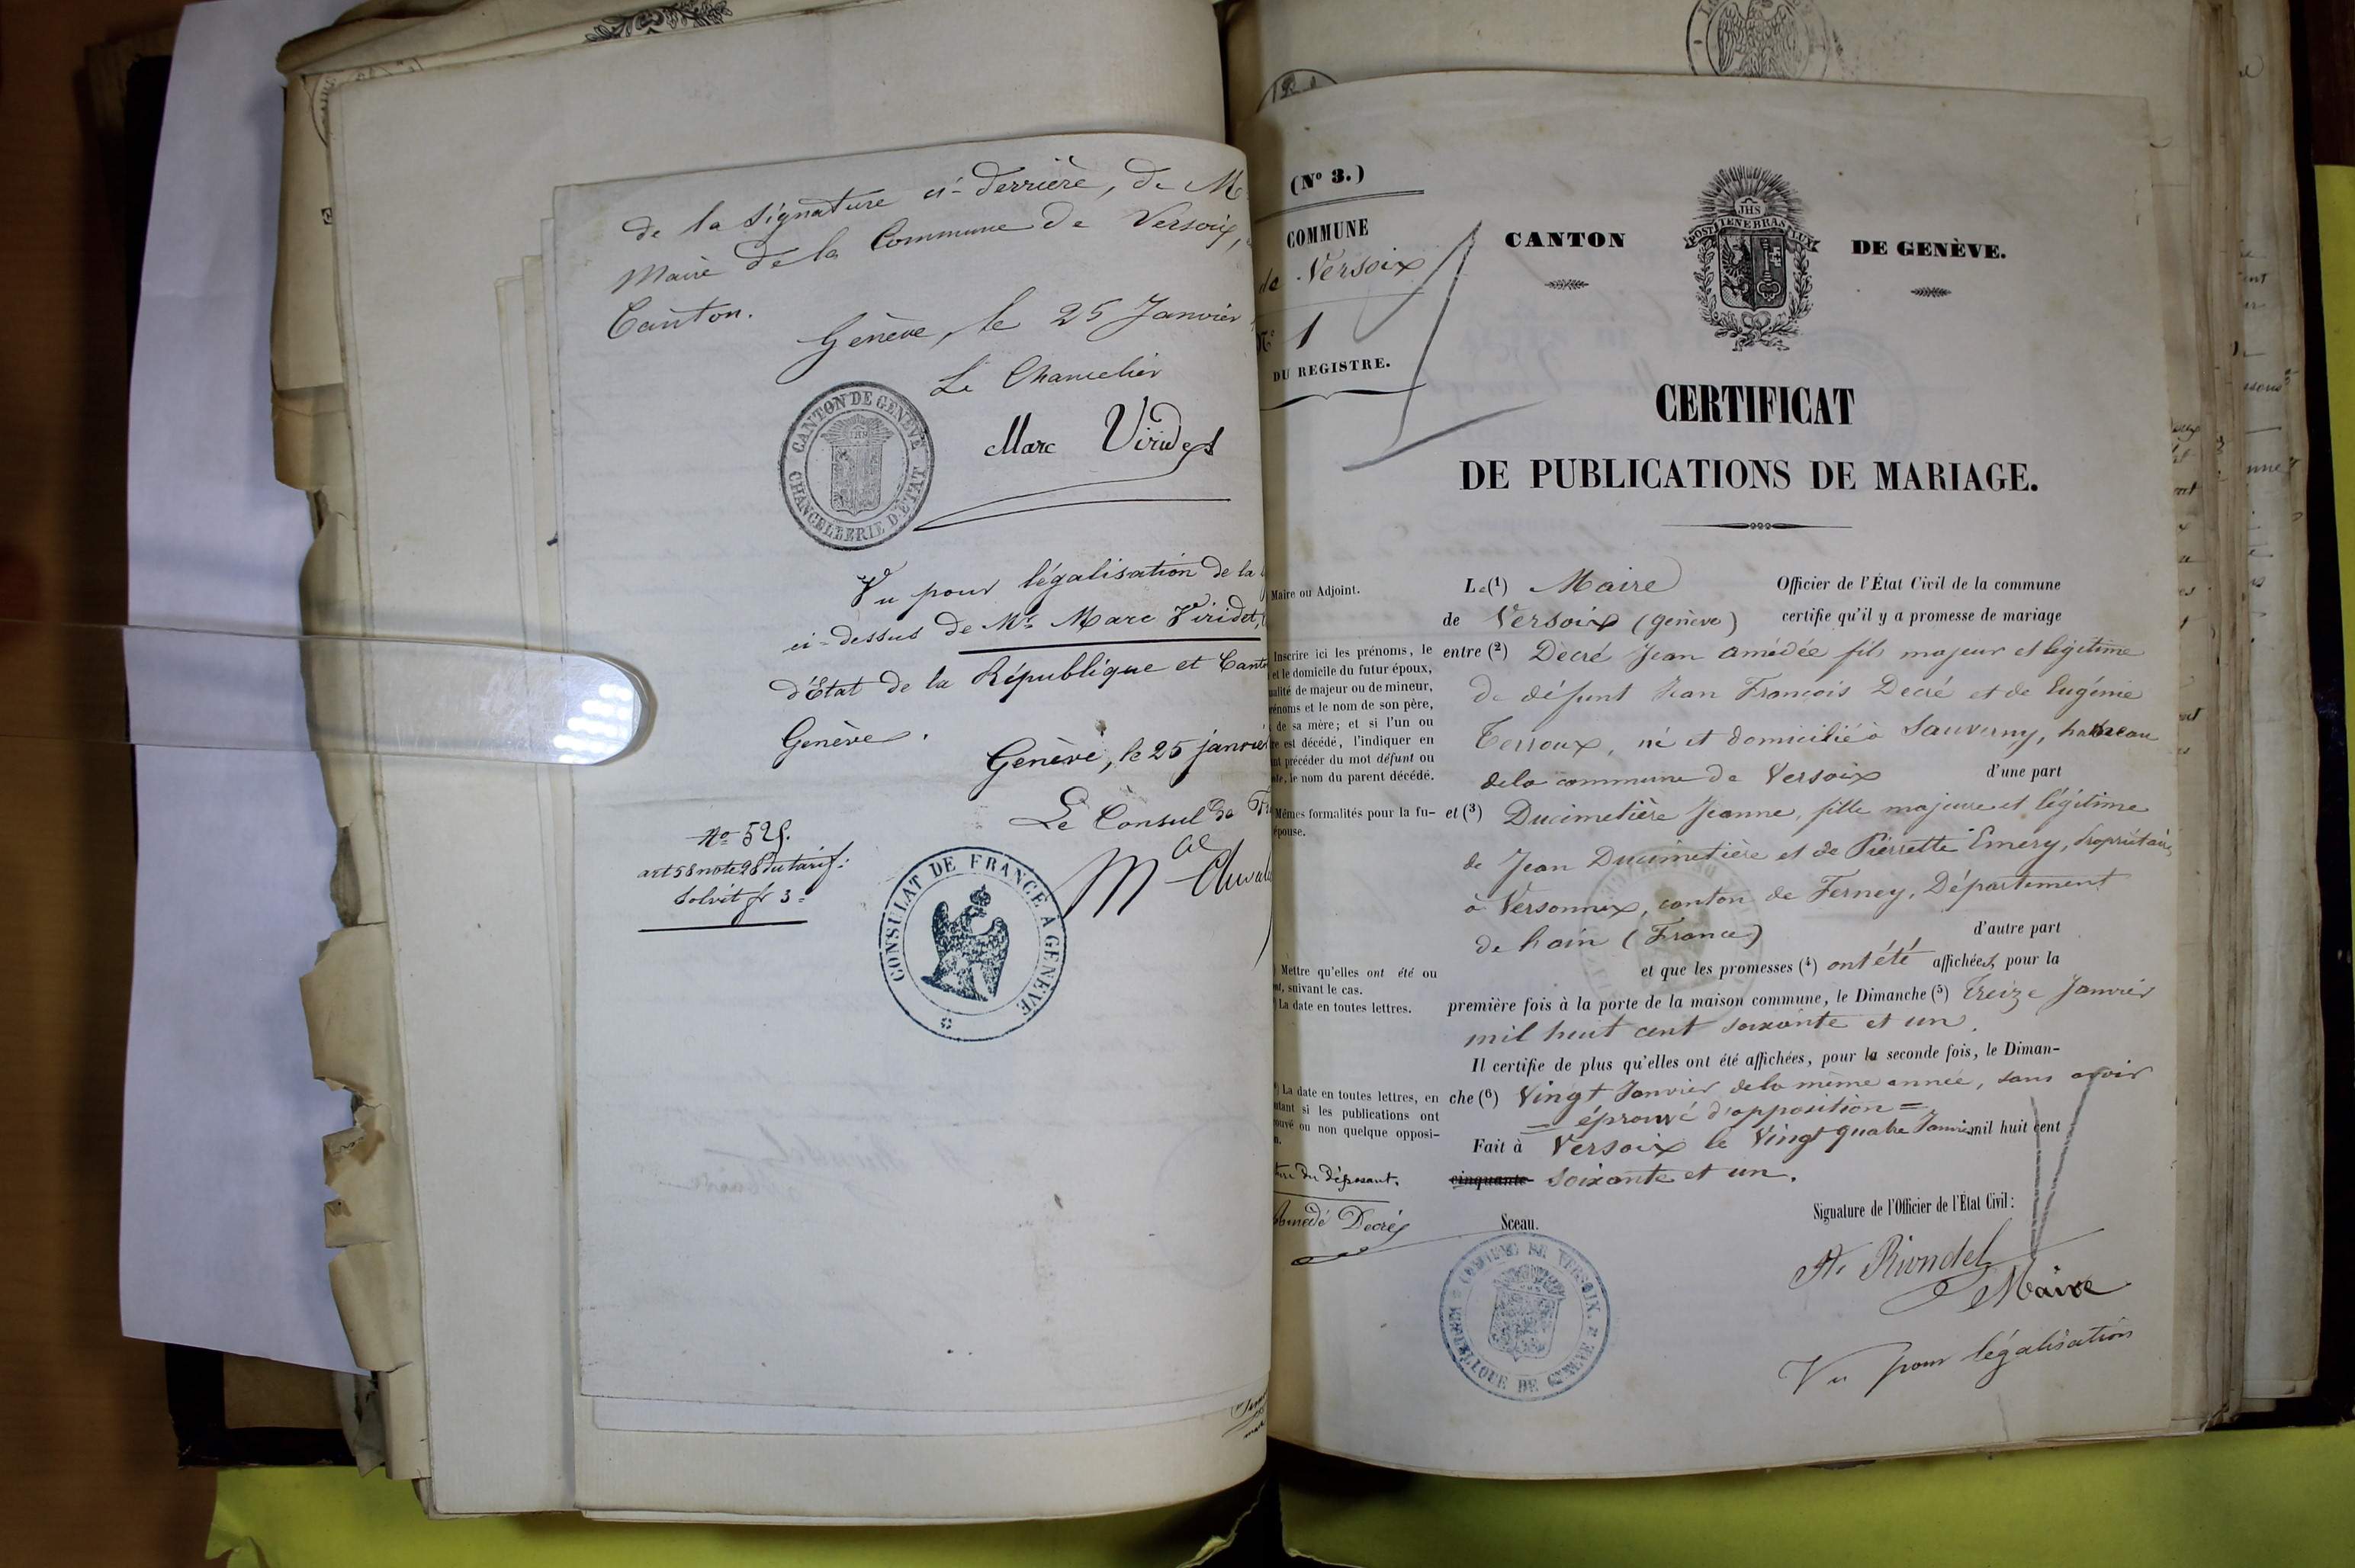 de la signature ci-derrière, de M
Maire de la Commune de Versoix,
Canton.
Genève, le 25 Janvier
Le Chancelier
Marc Viridet
CANTON DE GENÈVE
CHANCELLERIE D'ÉTAT
Vu pour légalisation de la
ci-dessus de Mr. Marc Viridet,
d'État de la République et Cant
Genève.
Genève, le 25 janvier
Le Consul de
No 525.
art 58 note 28 du tarif:
Solvit fr 3=
CONSULAT DE FRANCE A GENÈVE
(No 3.)
COMMUNE
de Versoix
No 1
DU REGISTRE.
CANTON
POST TENEBRAS LUX
JHS
DE GENÈVE.
CERTIFICAT
DE PUBLICATIONS DE MARIAGE.
Maire ou Adjoint.
Le (1) Maire Officier de l'État Civil de la commune
de Versoix (genève) certifie qu'il y a promesse de mariage
Inscrire ici les prénoms, le
et le domicile du futur époux,
de majeur ou de mineur,
et le nom de son père,
de sa mère; et si l'un ou
est décédé, l'indiquer en
précéder du mot défunt ou
le nom du parent décédé.
entre (2) Décré Jean amédée fils majeur et légitime
de défunt Jean François Decré et de Eugénie
Terroux, né et domicilié à Sauverny, hameau
de la commune de Versoix d'une part
Mêmes formalités pour la fu-
épouse.
et (3) Ducimetière Jeanne, fille majeure et légitime
de Jean Ducimetière et de Pierrette Emery, propriétaire
à Versonnex, canton de Ferney, Département
de hain (France) d'autre part
Mettre qu'elles ont été ou
suivant le cas.
La date en toutes lettres.
et que les promesses (4) ont été affichées, pour la
première fois à la porte de la maison commune, le Dimanche (5) treize Janvier
mil huit cent soixante et un.
Il certifie de plus qu'elles ont été affichées, pour la seconde fois, le Diman-
La date en toutes lettres, en
si les publications ont
ou non quelque opposi-
che (6) Vingt Janvier de la même année, sans avoir
= éprouvé d'opposition =
Fait à Versoix le Vingt quatre Janvier mil huit cent
cinquante soixante et un.
du déposant.
Amédé Decré
Sceau.
COMMUNE DE VERSOIX.
REPUBLIQUE DE GENEVE
Signature de l'Officier de l'État Civil:
A. Riondel
Maire
Vu pour légalisation